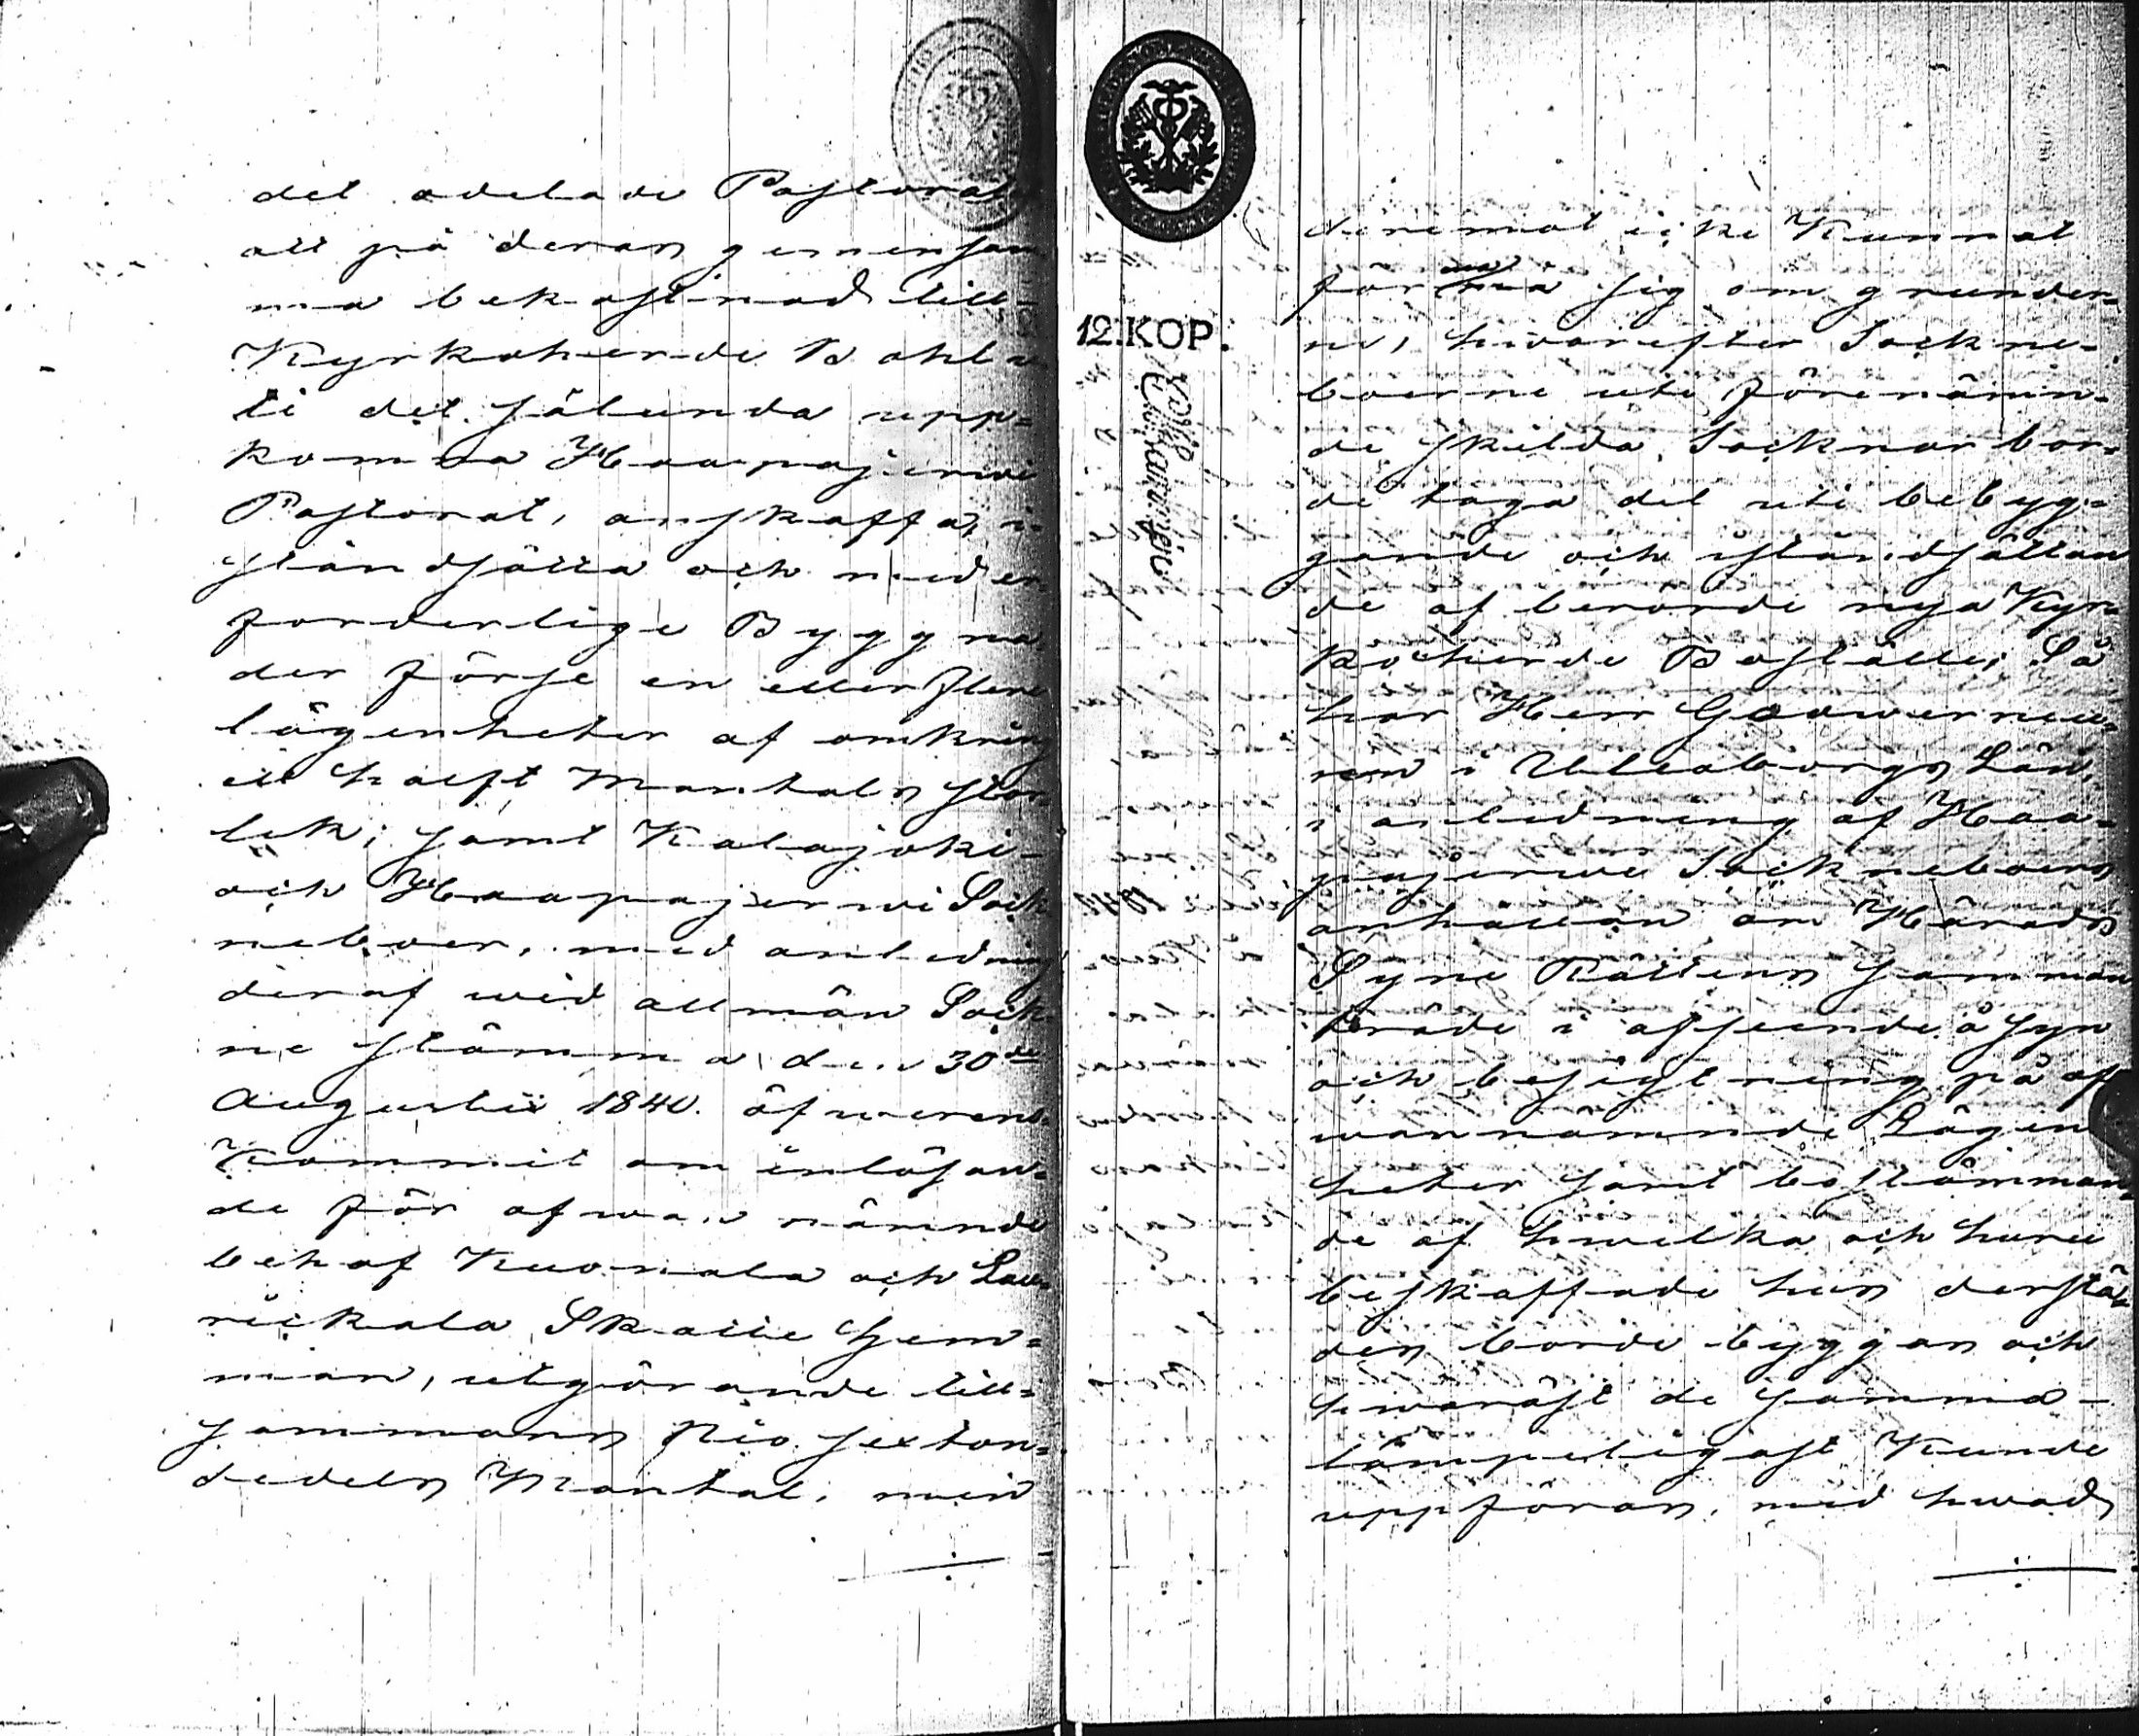 det odelade Pastorat
att på deras gemensam
ma bekostnad till
Kyrkoherde Bohl
ti det sålunda upp=
komna Haapajerwi
Pastorat, anskaffa, i
ståndsätta och med er
forderlige Byggna
der förse en eller flere
lägenheter af omkring
ett halft Mantals stor
lek; samt Kalajoki-
och Haapajerwi Sock
neboer, med anledning
deraf wid allmän Sock
ne stämma den 30de
Augustii 1840. öfwerens
kommit om inlösan=
de för ofwan nämnde
behof Kuonala och Lau
rickala Skatte Hem=
man, utgörande till=
sammans nio sexton=
dedels Mantal, men
12.KOP.
deremot icke kunnat
förena sig om grunder=
ne, hwarefter Sockne-
boerne uti förenämn-
de skilda Socknar bor=
de taga del uti bebyg=
gande och iståndsättan
de af berörde nya Kyr=
koherde Boställe; Så
har Herr Gouverneu=
ren i Uleåborgs Län,
i anledning af Haa=
pajerwi Sockneboers
anhållan om Härads
Syne Rättens samman
träde i afseende å syn
och besigtning på of
wannämnde Lägen
heter samt bestämman
de af hwilka och huru
beskaffade hus derstä
des borde byggas och
hwaräst de samma-
lämpeligast kunde
uppföras, med hwad